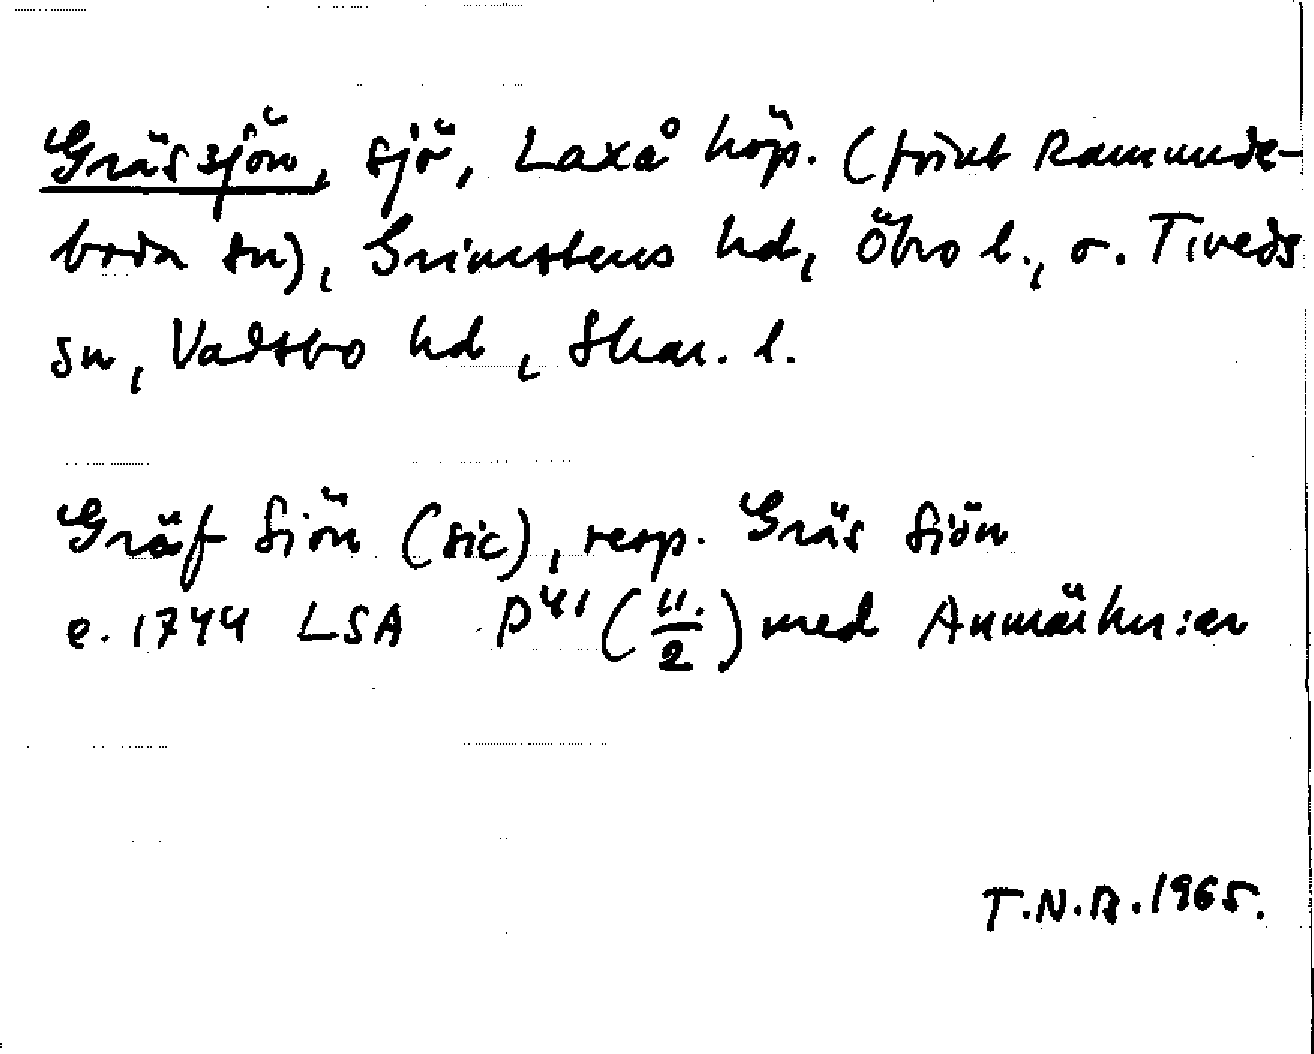 Grässjön, sjö, Laxå köp. (förut Ramunde-
boda sn), Grimstens hd, Öbro l., o. Tiveds
sn, Vadsbo hd, Skar. l.
Gräf Siön (sic), resp. Gräs Siön
e. 1744 LSA P41 (11./2) med Anmärkn:er
T.N.A. 1965.